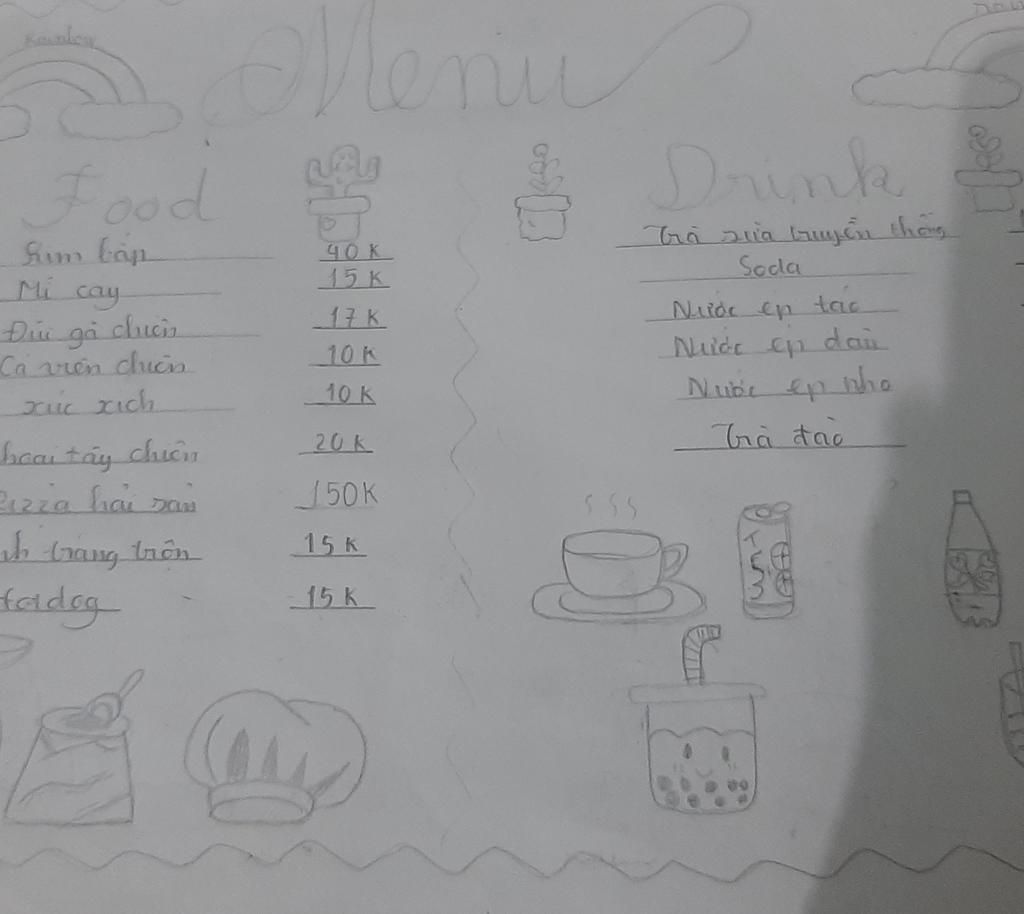 Rainbow
Menu
Food
Kim bắp 40K
Mì cay 15K
Đùi gà chiên 17K
Cá viên chiên 10K
xúc xích 10K
hoai tây chiên 20K
Pizza hải sản 150K
nh tráng trộn 15K
Hotdog 15K
Drink
Trà sữa truyền thống
Soda
Nước ép táo
Nước ép dâu
Nước ép nho
Trà đào